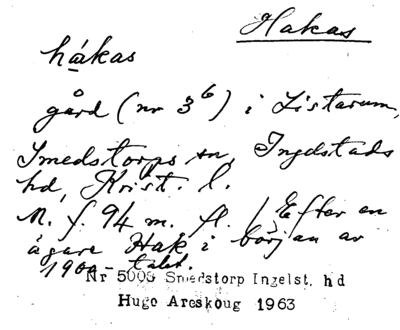 Hakas
håkas
gård (nr 3⁶) i Listarum,
Smedstorps sn, Ingelstads
hd, Krist. l.
M. f. 94 m. fl. / Efter en
ägare Hak i början av
1900-talet.
Nr 5009 Smedstorp Ingelst. hd
Hugo Areskoug 1963